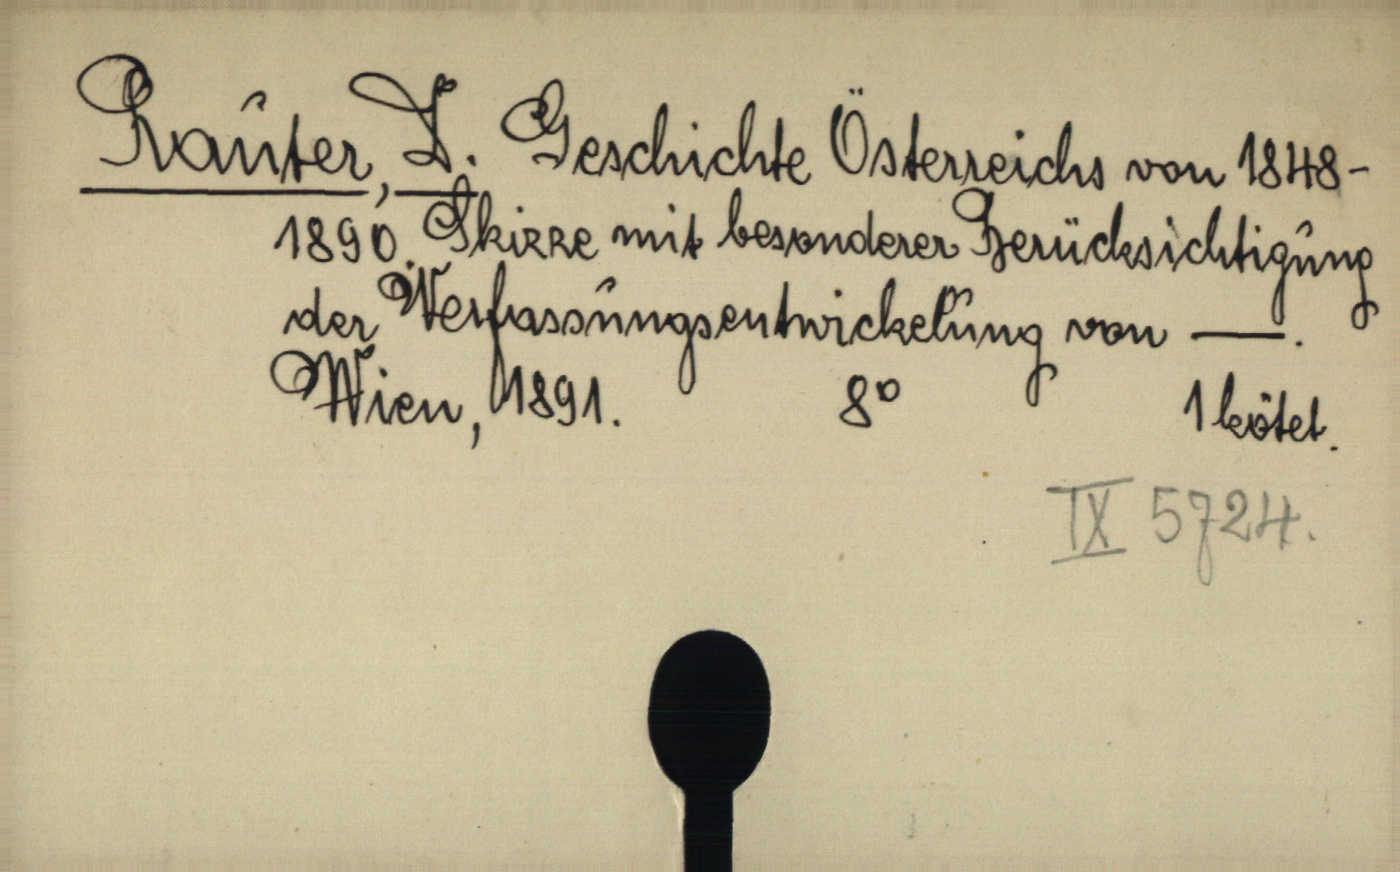 Rauter, L. Geschichte Österreichs von 1848-
1890. Skizze mit besonderer Berücksichtigung
der Verfassungsentwickelung von —.
Wien, 1891. 8° 1 kötet.
IX 5724.